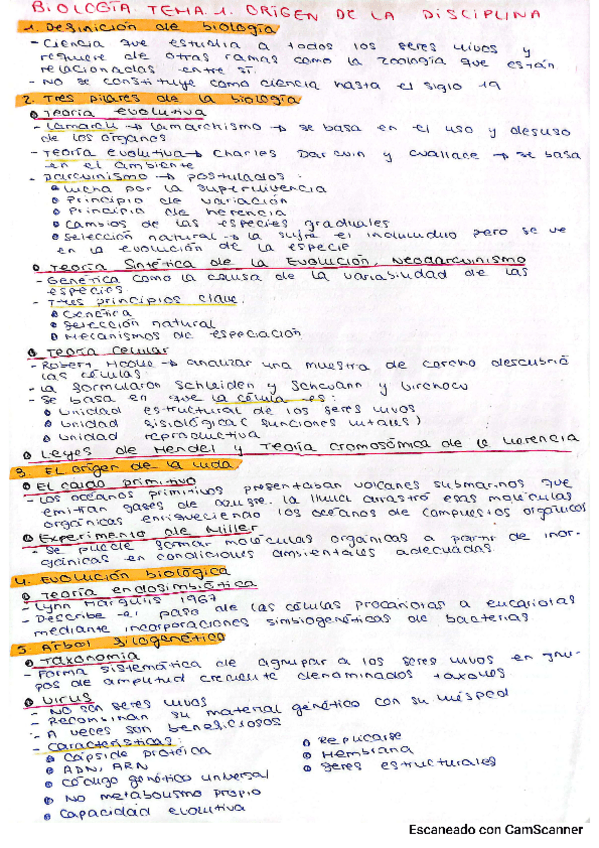 BIOLOGÍA TEMA 1. ORIGEN DE LA DISCIPLINA
1. Definición de biología
- Ciencia que estudia a todos los seres vivos y
requiere de otras ramas como la zoología que están
relacionados entre sí.
- NO se constituye como ciencia hasta el siglo 19
2. Tres pilares de la biología
Teoría evolutiva
- Lamarck → Lamarckismo → se basa en el uso y desuso
de los órganos
- Teoría evolutiva → Charles Darwin y Wallace → se basa
en el ambiente
- Darwinismo → postulados:
Lucha por la supervivencia
Principio de variación
Principio de herencia
Cambios de las especies graduales
Selección natural → la sufre el individuo pero se ve
en la evolución de la especie
Teoría Sintética de la Evolución, Neodarwinismo
- Genética como la causa de la variabilidad de las
especies
- Tres principios clave:
Genética
Selección natural
Mecanismos de especiación
Teoría celular
- Robert Hooke → analizar una muestra de corcho descubrió
las células
- La formularon Schleiden y Schwann y Virchow
- Se basa en que la célula es:
Unidad estructural de los seres vivos
Unidad fisiológica (funciones vitales)
Unidad reproductiva
Leyes de Mendel y Teoría cromosómica de la herencia
3. El origen de la vida
El caldo primitivo
- Los océanos primitivos presentaban volcanes submarinos que
emitían gases de azufre. La lluvia arrastró esas moléculas
orgánicas enriqueciendo los océanos de compuestos orgánicos
Experimento de Miller
- Se puede formar moléculas orgánicas a partir de inor-
gánicas en condiciones ambientales adecuadas
4. Evolución biológica
Teoría endosimbiótica
- Lynn Margulis 1967
- Describe el paso de las células procariotas a eucariotas
mediante incorporaciones simbiogenéticas de bacterias
5. Árbol filogenético
Taxonomía
- Forma sistemática de agrupar a los seres vivos en gru-
pos de amplitud creciente denominados taxones
Virus
- NO son seres vivos
- Recombinan su material genético con su huésped
- A veces son beneficiosos
- Características:
Cápside protéica
ADN, ARN
Código genético universal
No metabolismo propio
Capacidad evolutiva
Replicarse
Membrana
Seres estructurales
Escaneado con CamScanner